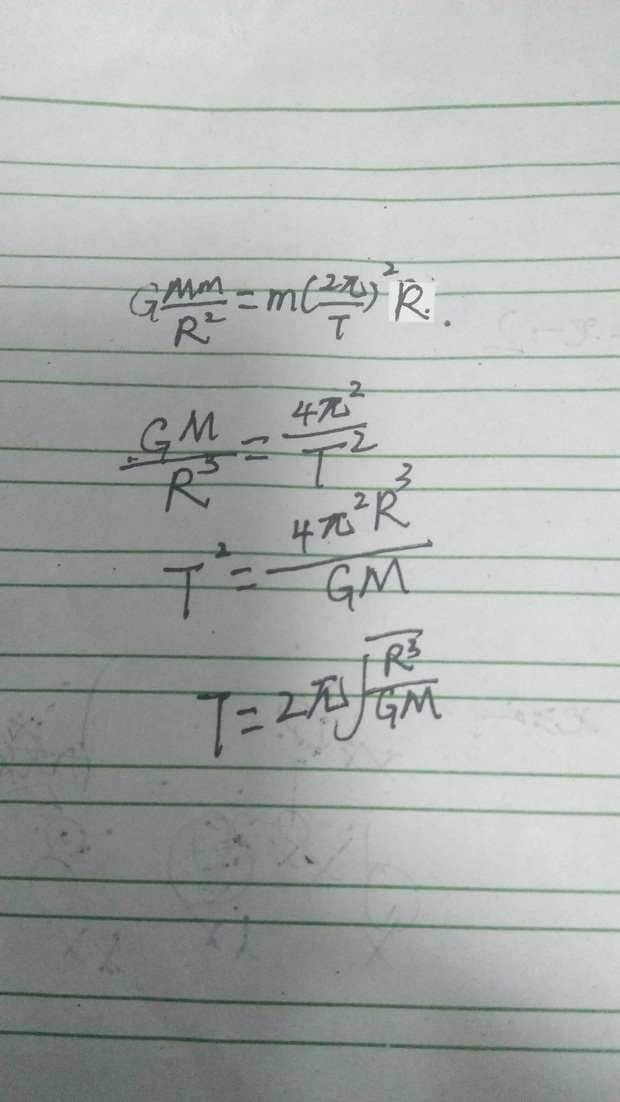 G\frac{Mm}{R^2}=m(\frac{2π}{T})^2R.
\frac{GM}{R^3}=\frac{4π^2}{T^2}
T^2=\frac{4π^2R^3}{GM}
T=2π\sqrt{\frac{R^3}{GM}}